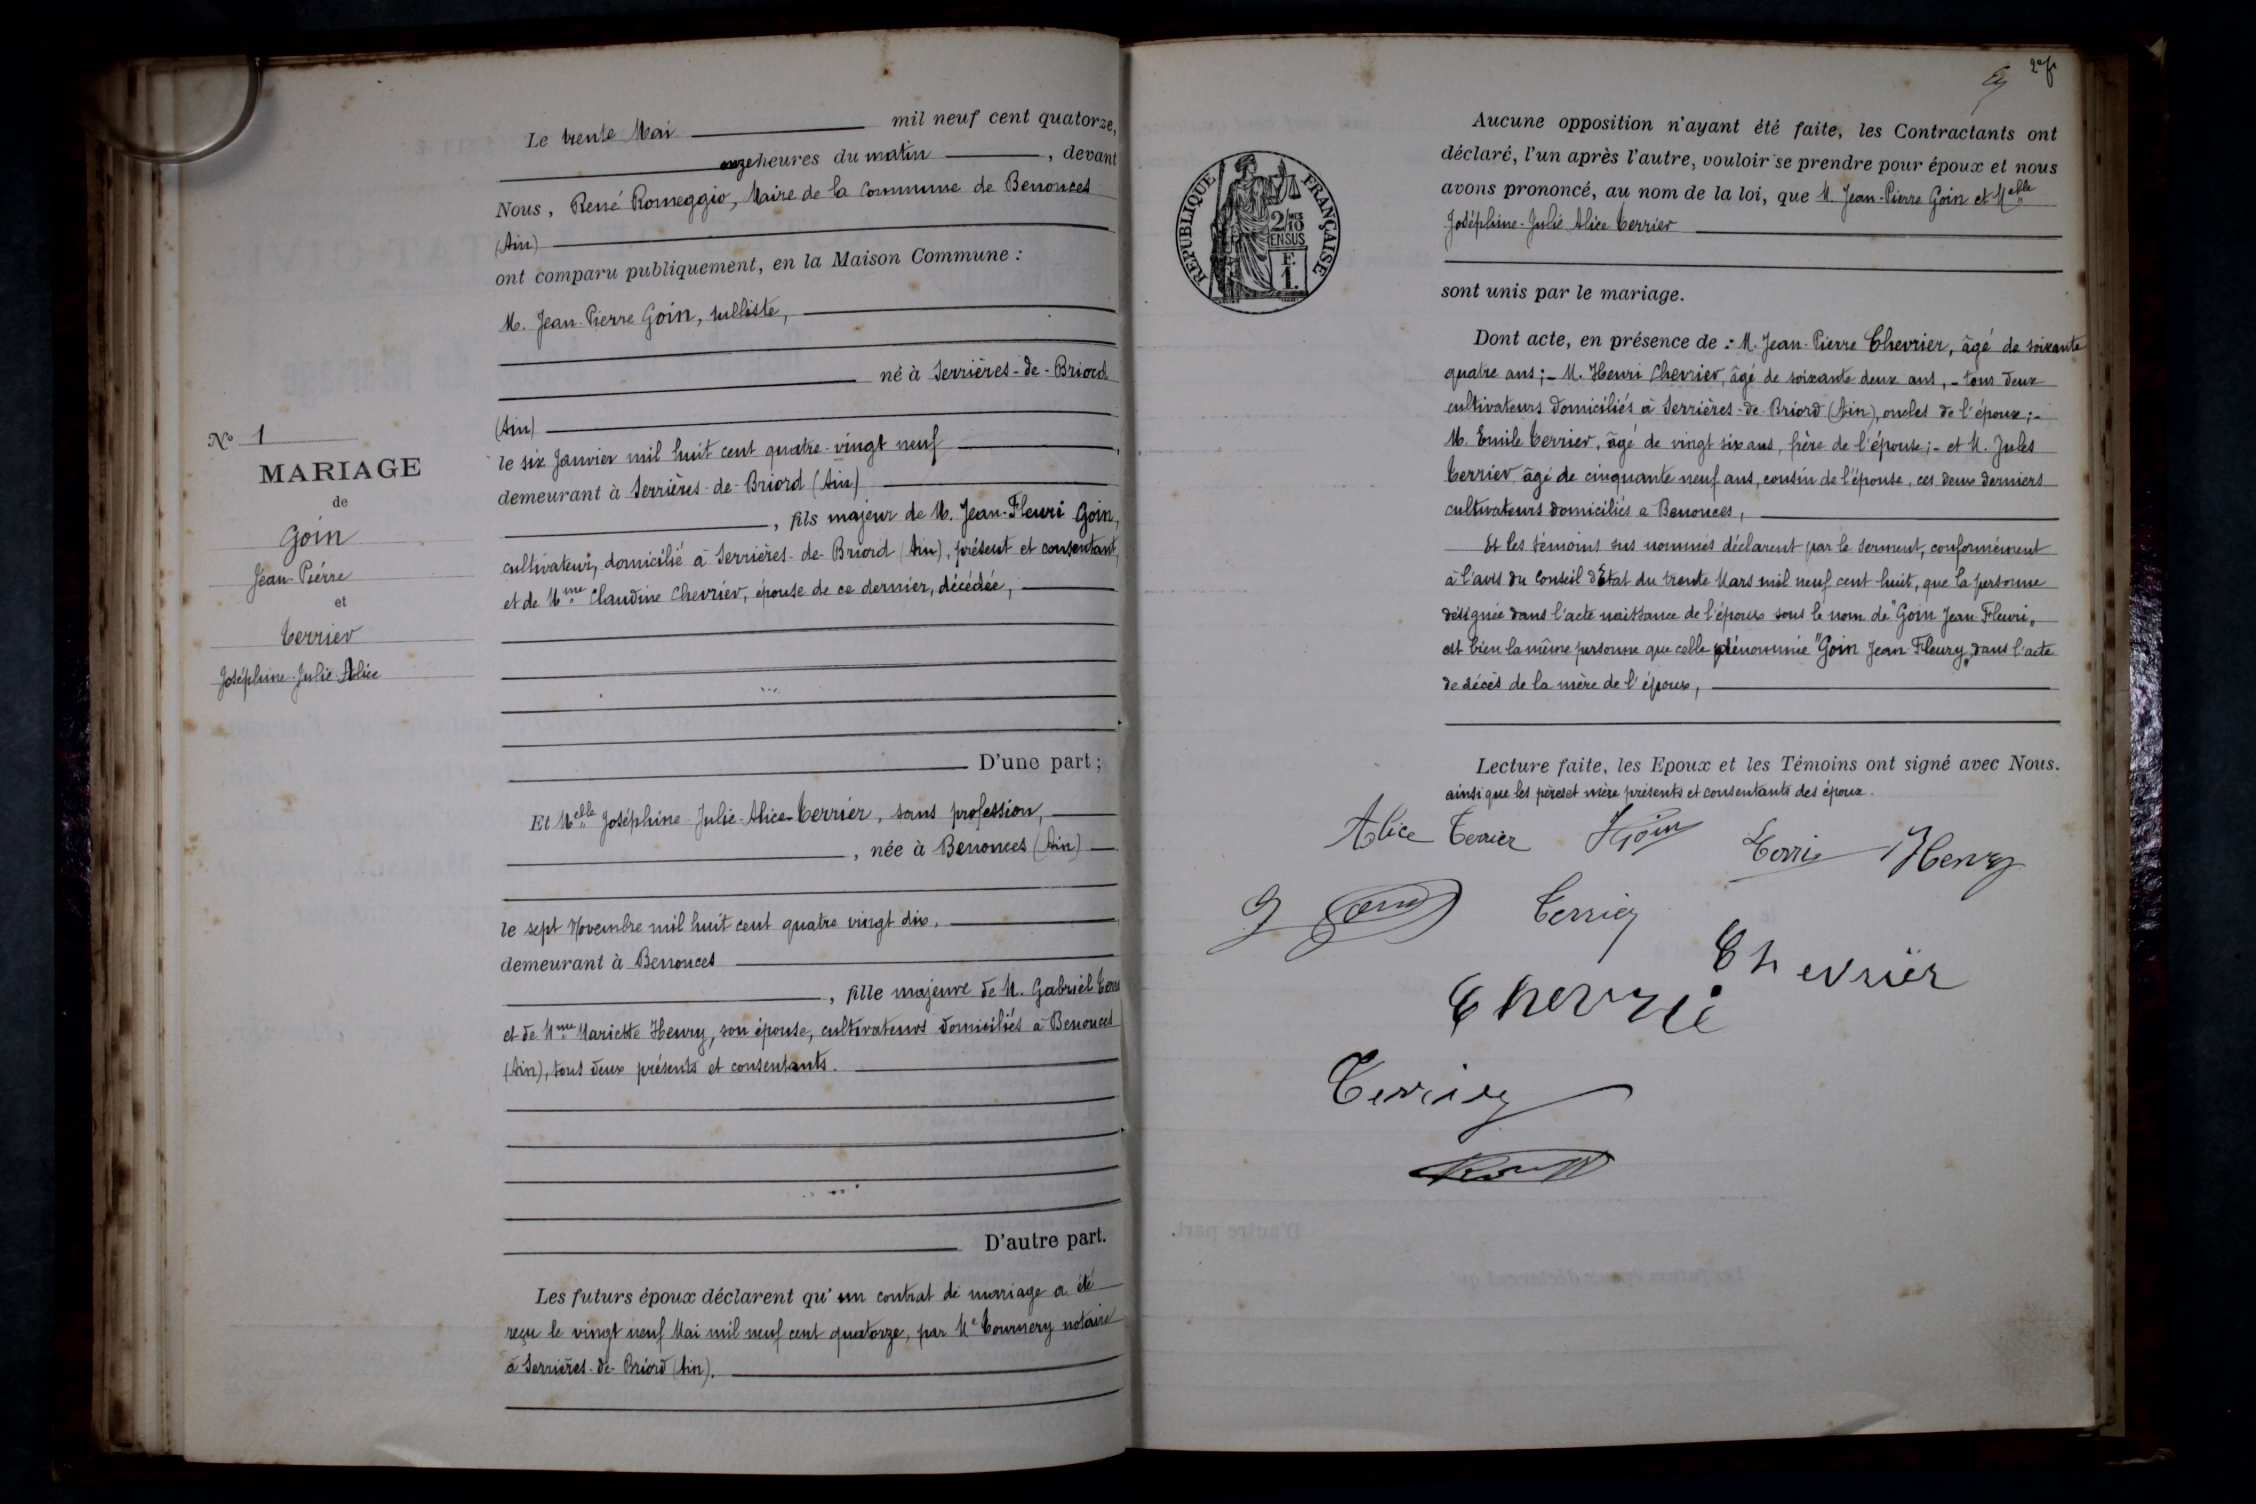 Le trente Mai mil neuf cent quatorze,
onze heures du matin, devant
Nous, René Romeggio, Maire de la commune de Benonces
(Ain)
ont comparu publiquement, en la Maison Commune :
M. Jean-Pierre Goin, tulliste,
né à Serrières-de-Briord
(Ain)
le six Janvier mil huit cent quatre-vingt neuf
demeurant à Serrières-de-Briord (Ain)
, fils majeur de M. Jean-Fleuri Goin,
cultivateur, domicilié à Serrières-de-Briord (Ain), présent et consentant,
et de Mme Claudine Chevrier, épouse de ce dernier, décédée,
D'une part ;
Et Melle Joséphine-Julie-Alice Terrier, sans profession,
, née à Benonces (Ain)
le sept Novembre mil huit cent quatre vingt dix,
demeurant à Benonces
, fille majeure de M. Gabriel
et de Mme Mariette Henry, son épouse, cultivateurs domiciliés à Benonces
(Ain), tous deux présents et consentants.
D'autre part.
Les futurs époux déclarent qu'un contrat de mariage a été
reçu le vingt neuf Mai mil neuf cent quatorze, par Me Tournery notaire
à Serrières-de-Briord (Ain).
N° 1
MARIAGE
de
Goin
Jean-Pierre
et
Terrier
Joséphine-Julie-Alice
2 f
RÉPUBLIQUE FRANÇAISE
2/10
EN SUS
F.
1.
Aucune opposition n'ayant été faite, les Contractants ont
déclaré, l'un après l'autre, vouloir se prendre pour époux et nous
avons prononcé, au nom de la loi, que M. Jean-Pierre Goin et Melle
Joséphine-Julie Alice Terrier
sont unis par le mariage.
Dont acte, en présence de : M. Jean-Pierre Chevrier, âgé de soixante
quatre ans ;- M. Henri Chevrier, âgé de soixante deux ans, - tous deux
cultivateurs domiciliés à Serrières-de-Briord (Ain), oncles de l'époux ;-
M. Emile Terrier, âgé de vingt six ans, frère de l'épouse ;- et M. Jules
Terrier âgé de cinquante neuf ans, cousin de l'épouse, ces deux derniers
cultivateurs domiciliés a Benonces,
Et les témoins sus nommés déclarent par le serment, conformément
à l'avis du Conseil d'Etat du trente Mars mil neuf cent huit, que la personne
désignée dans l'acte naissance de l'époux sous le nom de "Goin Jean-Fleuri„
est bien la même personne que celle dénommée "Goin Jean Fleury„ dans l'acte
de décès de la mère de l'époux,
Lecture faite, les Epoux et les Témoins ont signé avec Nous.
ainsi que les pères et mère présents et consentants des époux.
Alice Terrier JGoin Terrier Henry
Terrier
Chevrier
Chevrié
Terrier